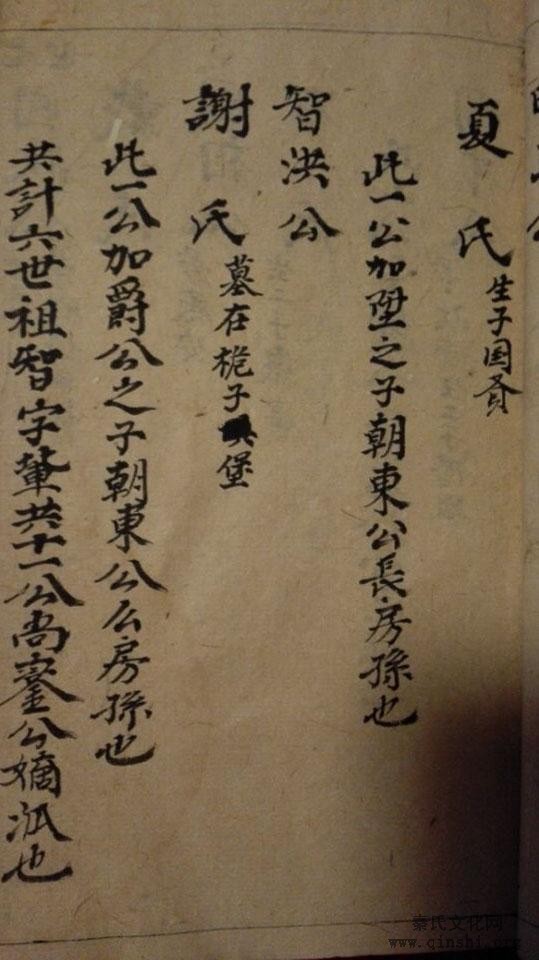 公
夏氏 生子国賢
此一公加陞之子朝東公長房孫也
智洪公
謝氏 墓在桅子堡
此一公加爵公之子朝東公么房孫也
共計六世祖智字輩共十一公尚鑾公嫡派也
秦氏文化网
www.qinshi.org